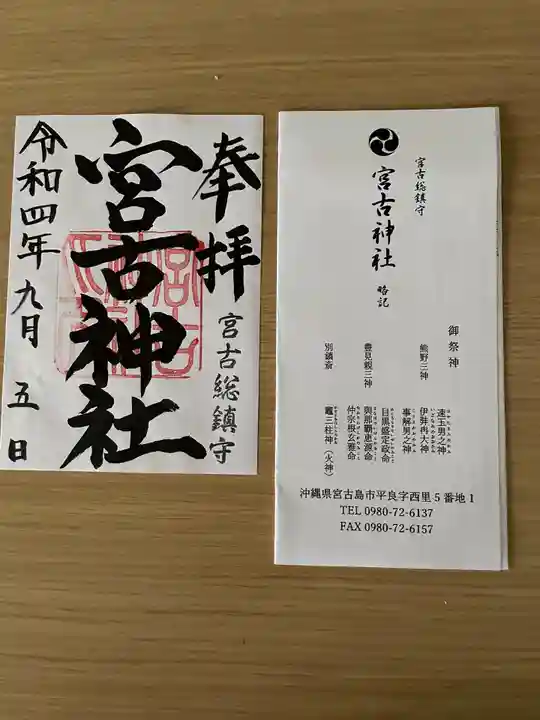 奉拝
宮古総鎮守
宮古神社
令和四年九月五日
宮古総鎮守
宮古神社
略記
御祭神
熊野三神
速玉男之神
伊弉冉大神
事解男之神
豊見親三神
目黒盛定政命
與那覇恵源命
仲宗根玄雅命
別鎮斎
竈三柱神（火神）
沖縄県宮古島市平良字西里5番地1
TEL 0980-72-6137
FAX 0980-72-6157